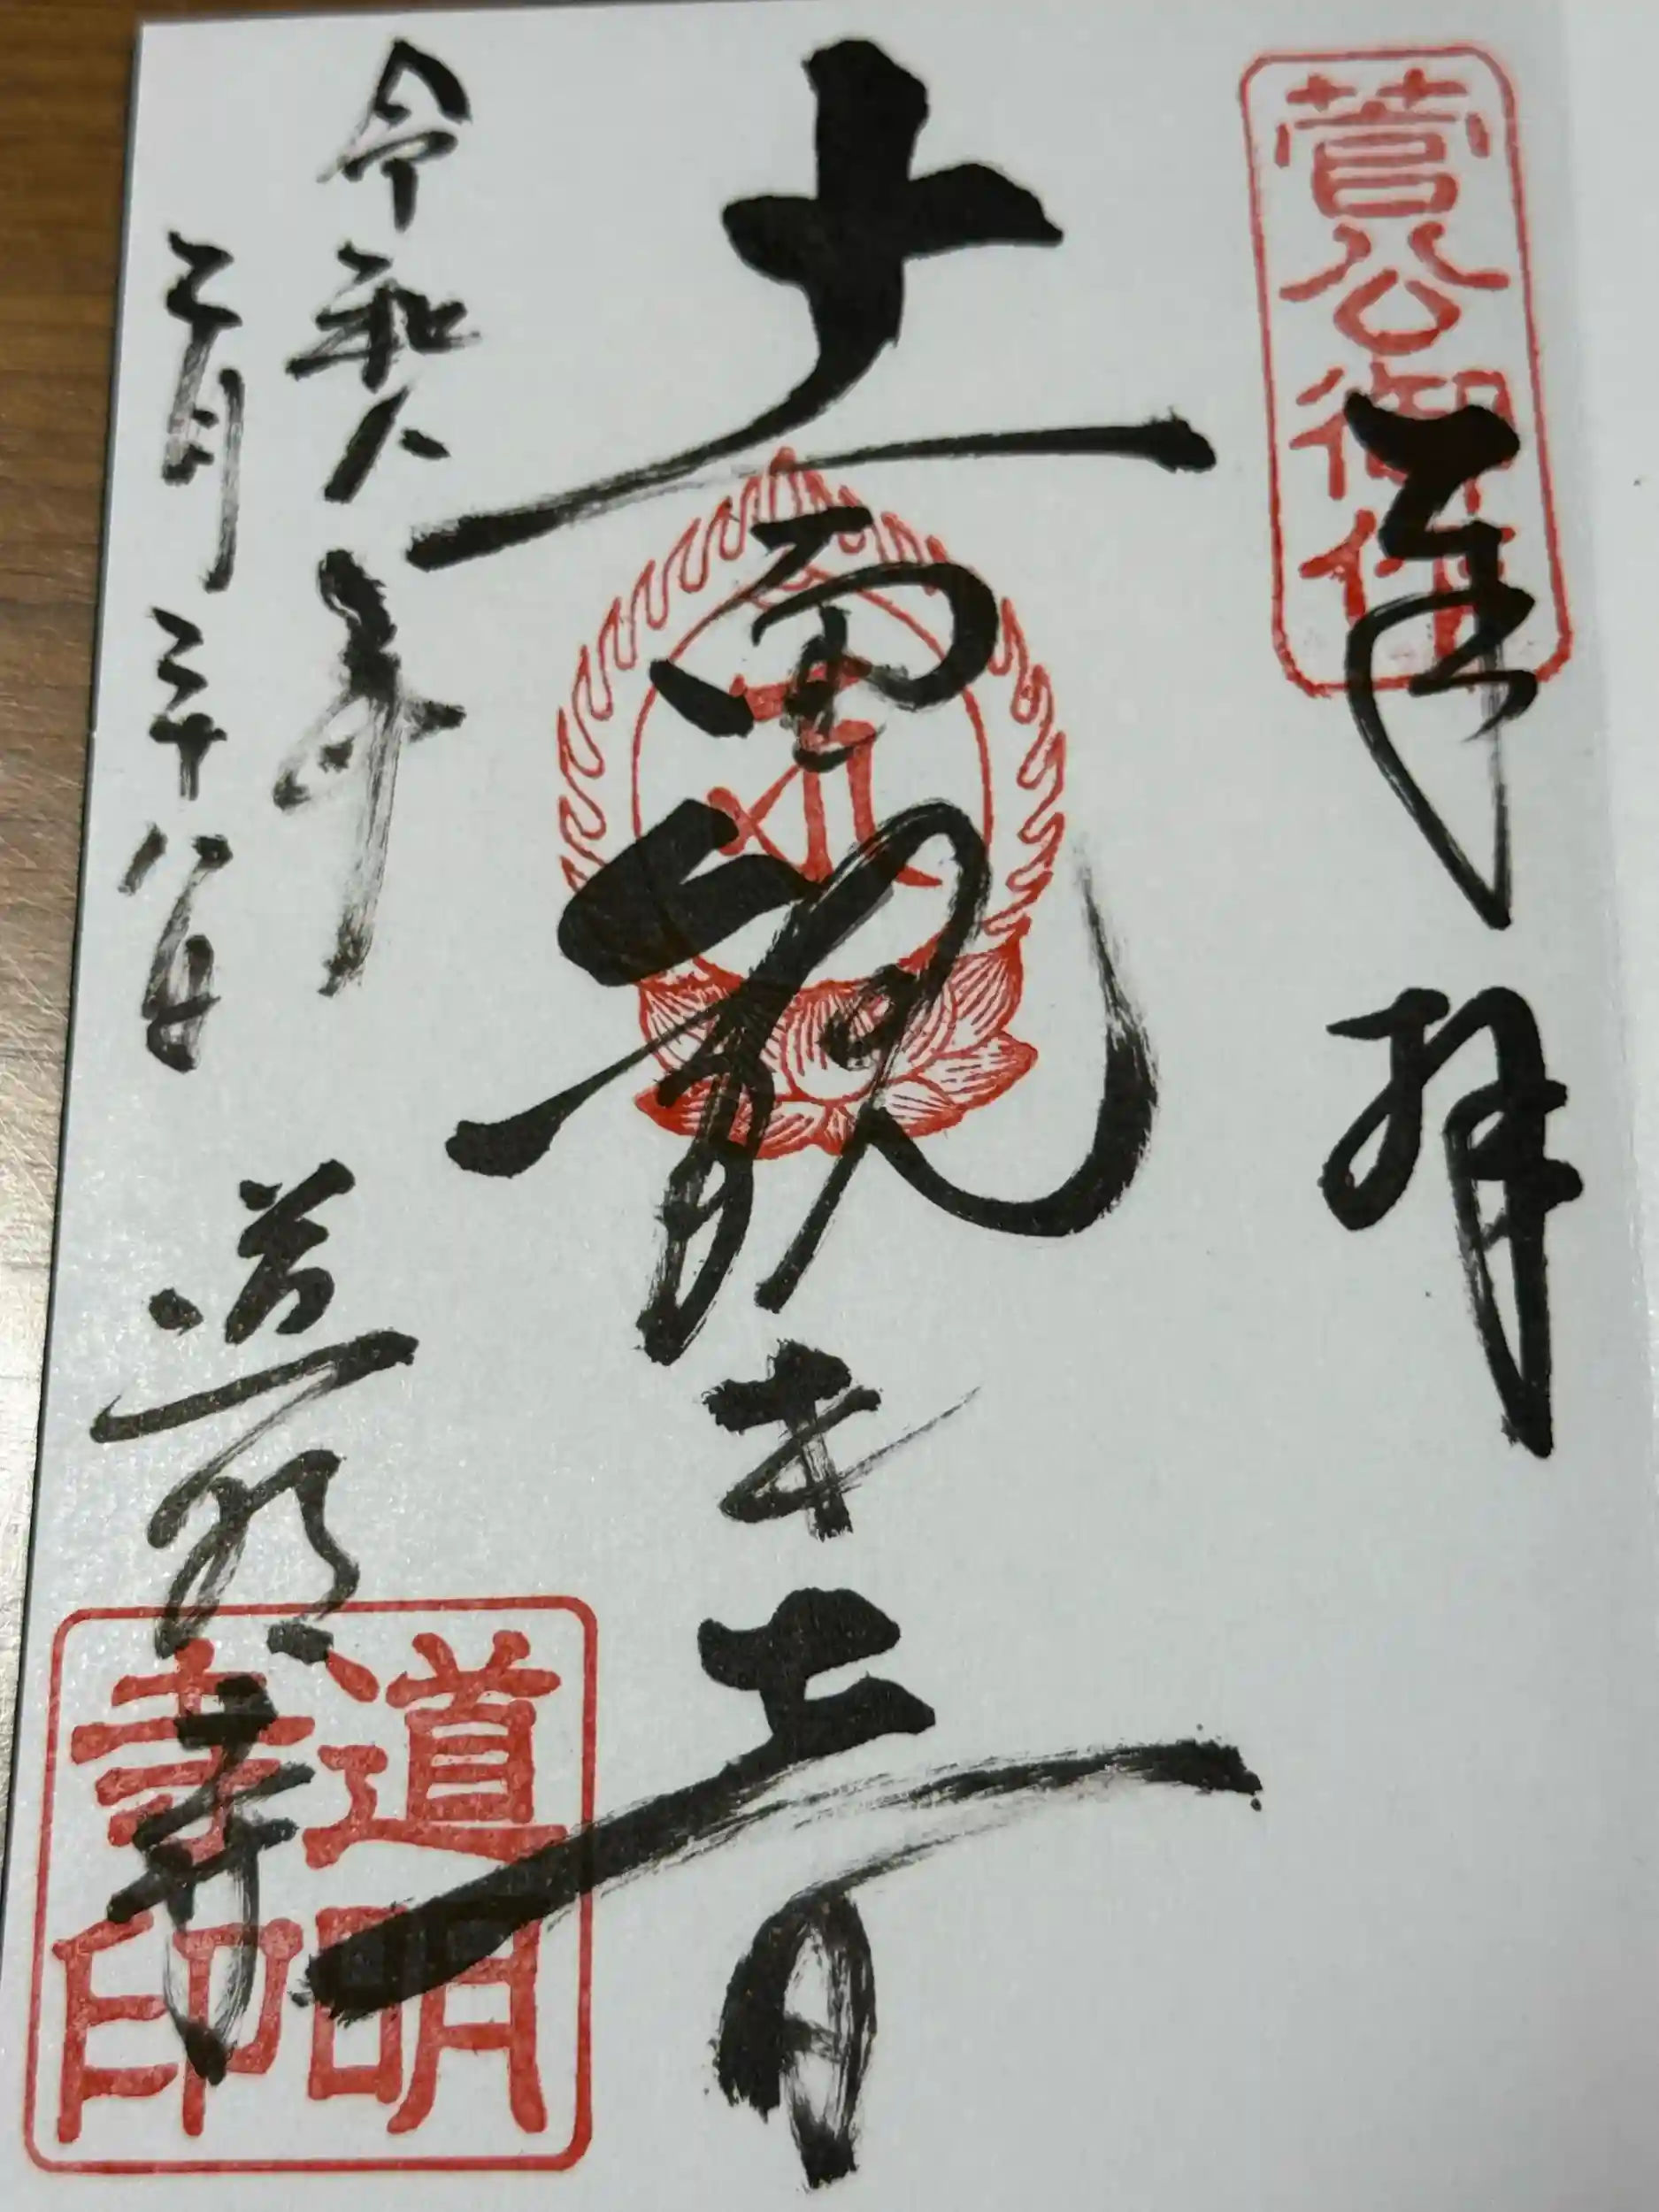 菅公御作
奉拝
十一面観世音
令和八年
二月二十八日
道明寺
道明寺印